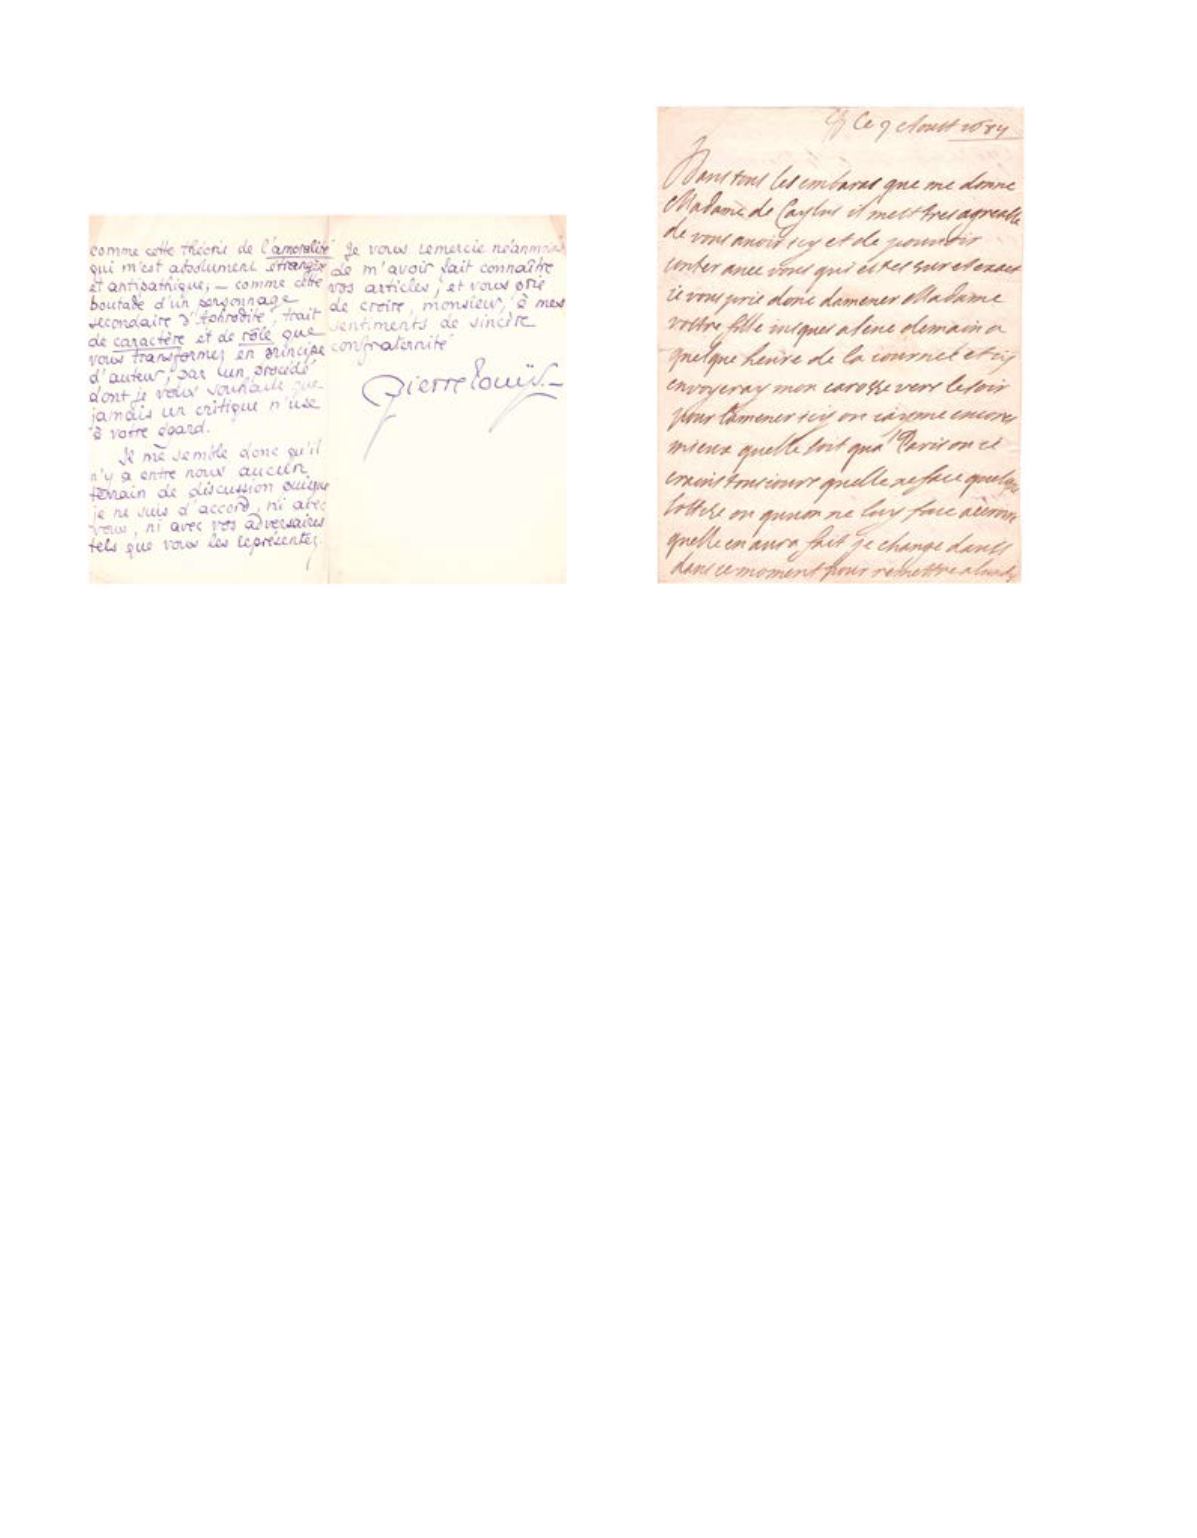 comme cette théorie de l'amoralité
qui m'est absolument étrangère
et antipathique, — comme cette
boutade d'un personnage
secondaire d'Aphrodite, trait
de caractère et de rôle que
vous transformez en principe
d'auteur, par un procédé
dont je vous souhaite que
jamais un critique n'use
à votre égard.
Il me semble donc qu'il
n'y a entre nous aucun
terrain de discussion puisque
je ne suis d'accord, ni avec
vous, ni avec vos adversaires
tels que vous les représentez.
Je vous remercie néanmoins
de m'avoir fait connaître
vos articles, et vous prie
de croire, monsieur, à mes
sentiments de sincère
confraternité
Pierre Louÿs
Ce 9 Aoust
Dans tous les embaras que me donne
Madame de Caylus il mest tres agreable
de vous avoir icy et de pouvoir
conter avec vous qui estes sur et exact
ie vous prie donc damener Madame
vostre fille iusques a demain a
quelque heure de la iournee et iy
envoyeray mon carosse vers le soir
pour lamener icy on encore
mieux quelle soit qua Paris on
craint tousiours quelle ne face quelque
sottise ou quon ne luy face
quelle en aura fait je change
dans ce moment pour remettre a lundy